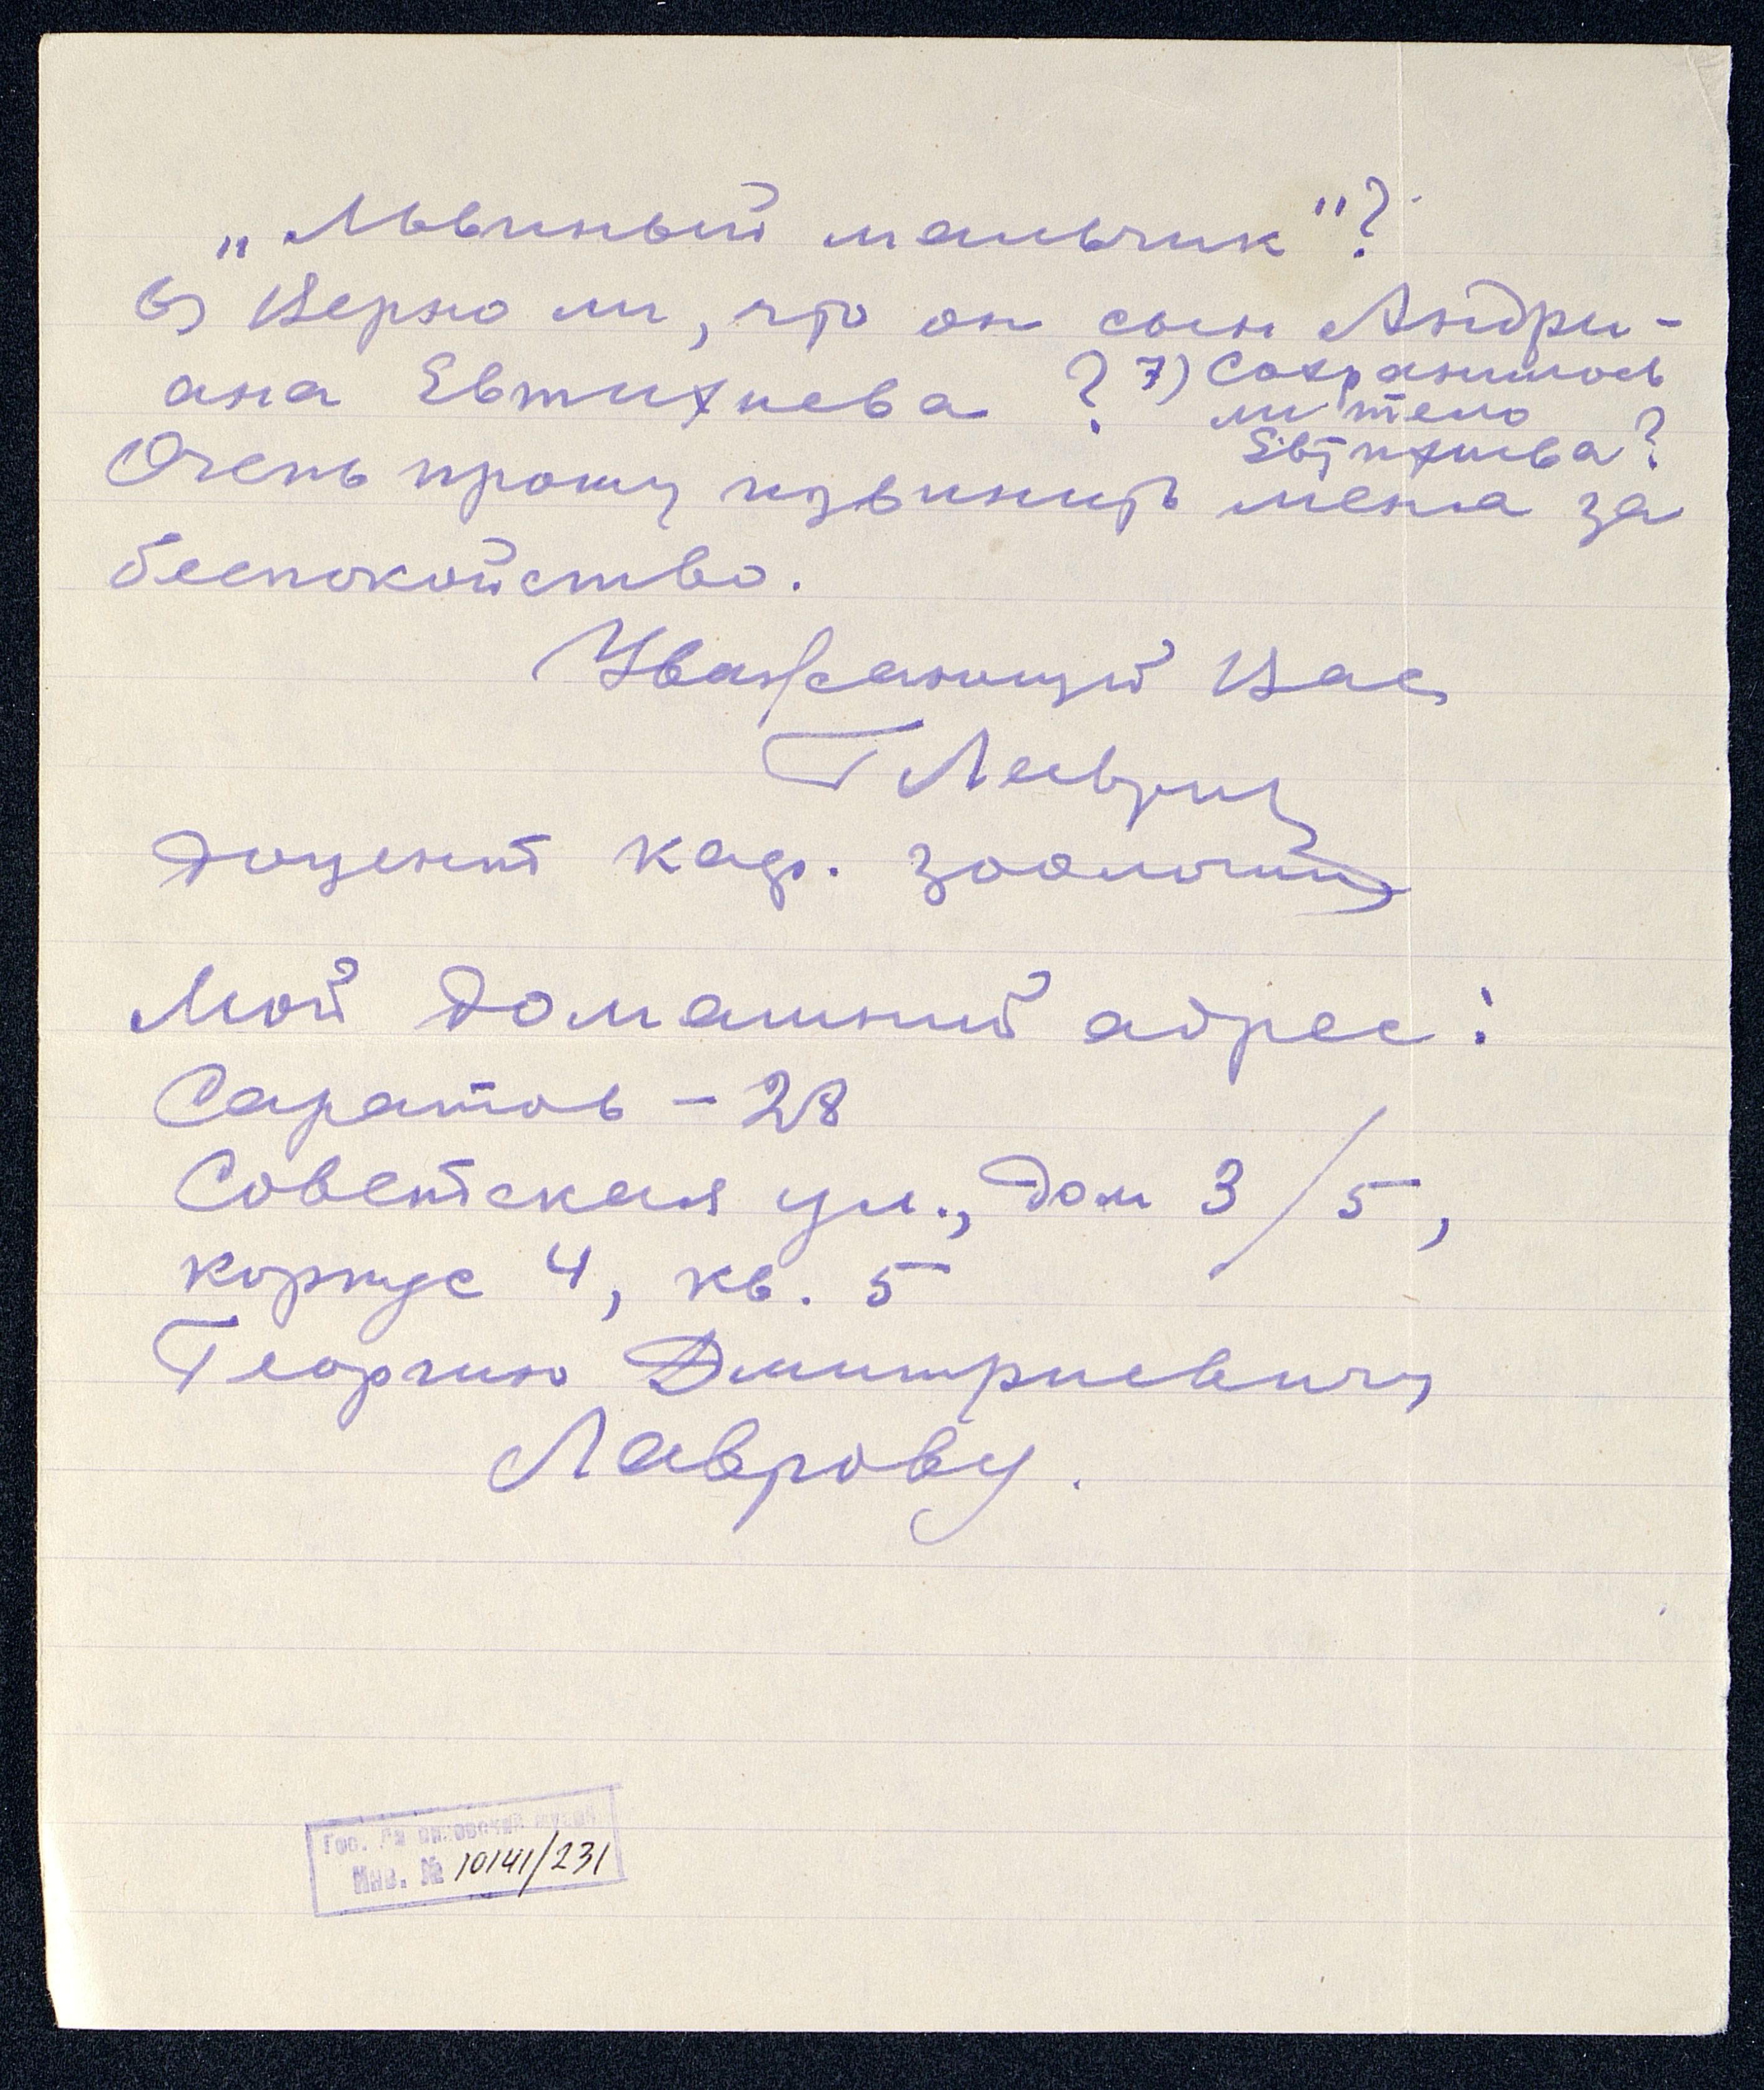 „Львиный мальчик"?
6) Верно ли, что он сын Андри-
ана Евтихиева ?
7) Сохранилось
ли тело
Евтихиева?
Очень прошу извинить меня за
беспокойство.
Уважающий Вас
Г Лавров
доцент каф. зоологии
Мой домашний адрес:
Саратов - 28
Советская ул., дом 3/5,
корпус 4, кв. 5
Георгию Дмитриевичу
Лаврову.
Гос. Дарвиновский музей
Инв. № 10141/231